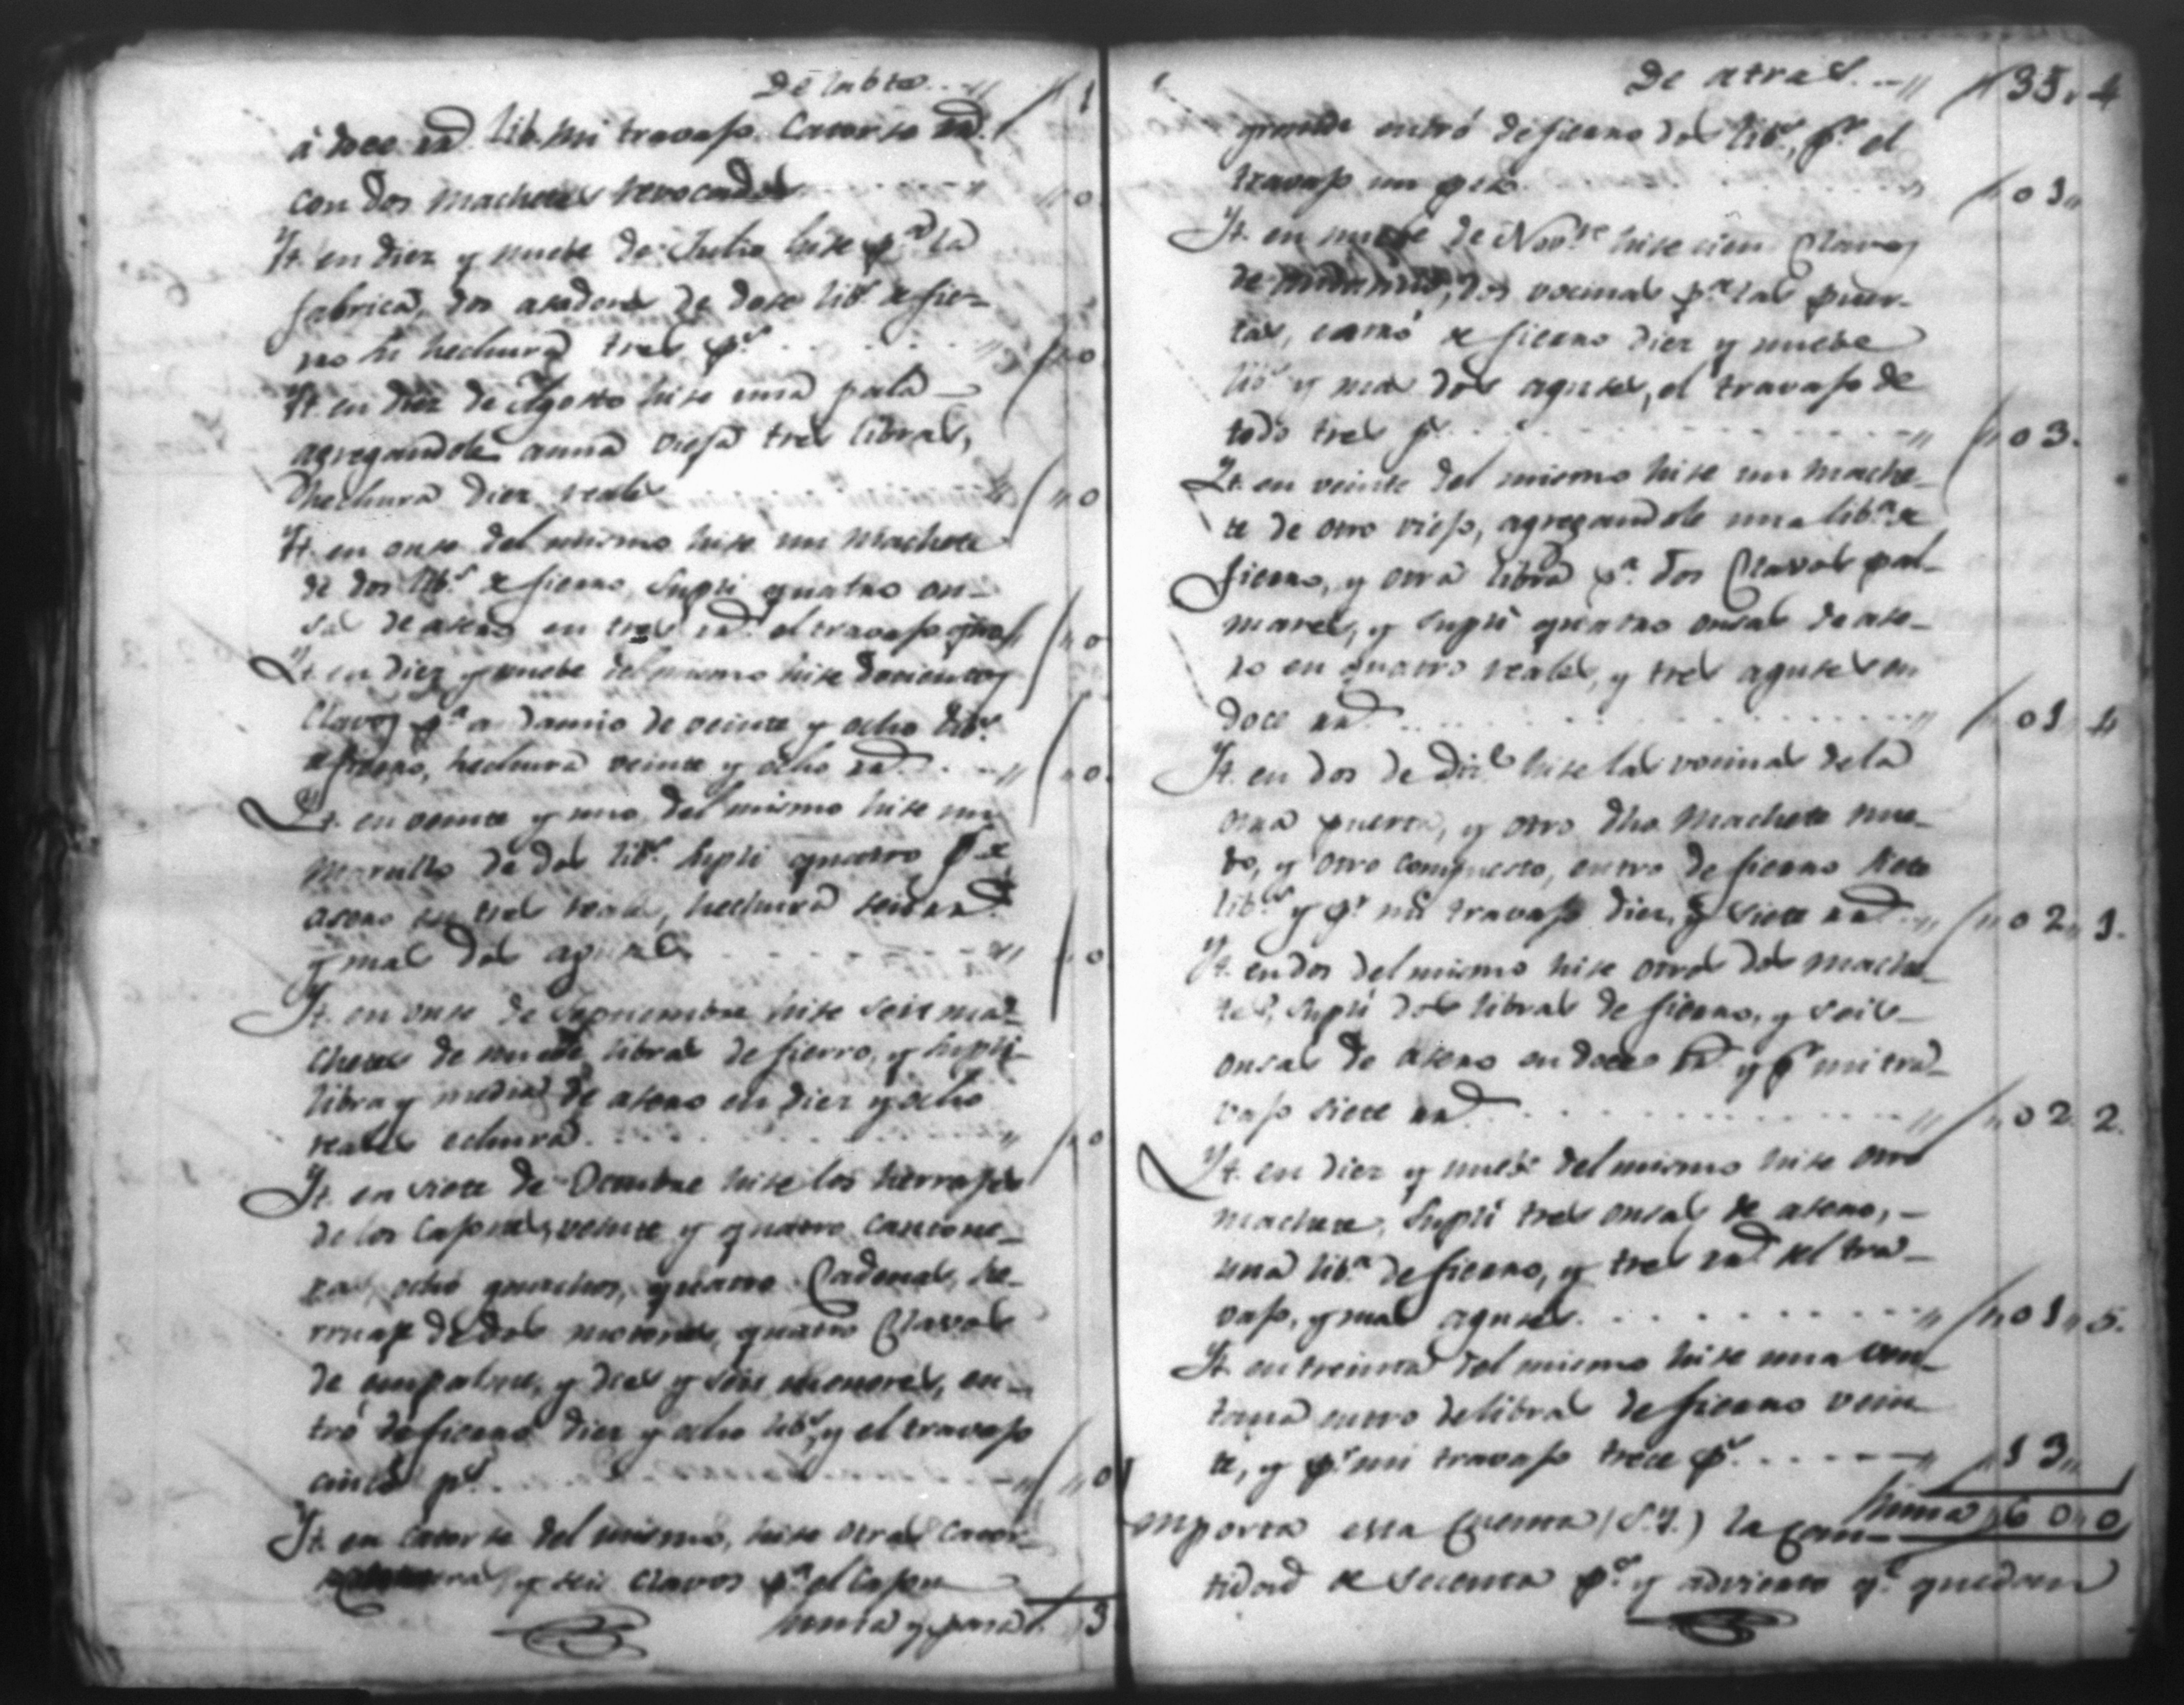 De la bta.. "
á doce rr.s Lib. mi travajo Catorse rr.s
con dos Machetes revocados " "0
Yt. en diez y nuebe de Julio hise p.a la
fabrica, dos asadores de dose lib.s de fie-
rro su hechura tres p.s "0
Yt. en diez de Agosto hise una pala
agregandole a una vieja tres libras,
hechura diez reales "0
Yt. en onse del mismo hise un Machete
de dos lib.s de fierro, supli quatro on-
sas de asero en tres rr.s el travajo "0
Yt. en diez y nuebe del mismo hise docientos
Clavos p.a de veinte y ocho lib.s
de fierro, hechura veinte y ocho rr.s "0
Yt. en veinte y uno del mismo hise un
Martillo de dos lib.s supli quatro de
asero en tres reales, hechura seis rr.s
y mas dos aguses " "0
Yt. en onse de Septiembre hise seis ma-
chetes de nuebe libras de fierro, y supli
libra y media de asero en diez y ocho
reales echura " "0
Yt. en siete de Octubre hise los herrajes
de los Cajones, veinte y quatro cantone-
ras, ocho ganchos, quatro Cadenas, he-
rraje de dos quatro Clavos
de y dies y seis menores, en-
tró de fierro diez y ocho lib.s y el travajo
cinco p.s " "0
Yt. en catorse del mismo, hise otras
y seis clavos p.a el Cajon
Suma y pasa 3
De atras. " 35" 4
grande entró de fierro dos lib.s, p.r el
travajo un peso " "01"
Yt. en nuebe de Nov.re hise cien Clavos
de dos vocinas p.a las puer-
tas, entró de fierro diez y nuebe
lib.s y mas dos aguses, el travajo de
todo tres p.s " "03.
Yt. en veinte del mismo hise un mache-
te de otro viejo, agregandole una lib.a de
fierro, y otra libra p.a dos Clavos pal-
mares, y supli quatro onsas de ase-
ro en quatro reales, y tres aguses en
doce rr.s " "01 4
Yt. en dos de Diz.e hise las vocinas de la
otra puerta, y otro dho. Machete nue-
bo, y otro compuesto, entro de fierro siete
lib.s y p.r mi travajo diez y siete rr.s " "02" 1.
Yt. en dos del mismo hise otros dos mache-
tes, supli dos libras de fierro, y seis
onsas de asero en doce rr.s y p.r mi tra-
vajo siete rr.s " "02 2.
Yt. en diez y nuebe del mismo hise otro
machete, supli tres onsas de asero,
una lib.a de fierro, y tres rr.s del tra-
vajo, y mas aguses " "01" 5.
Yt. en treinta del mismo hise una ven-
tana entro de libras de fierro vein-
te, y p.r mi travajo trece p.s " "13"
Suma "60"0
Ymporta esta Cuenta (S.Y.) la can-
tidad de Secenta p.s y advierto q.e quedan